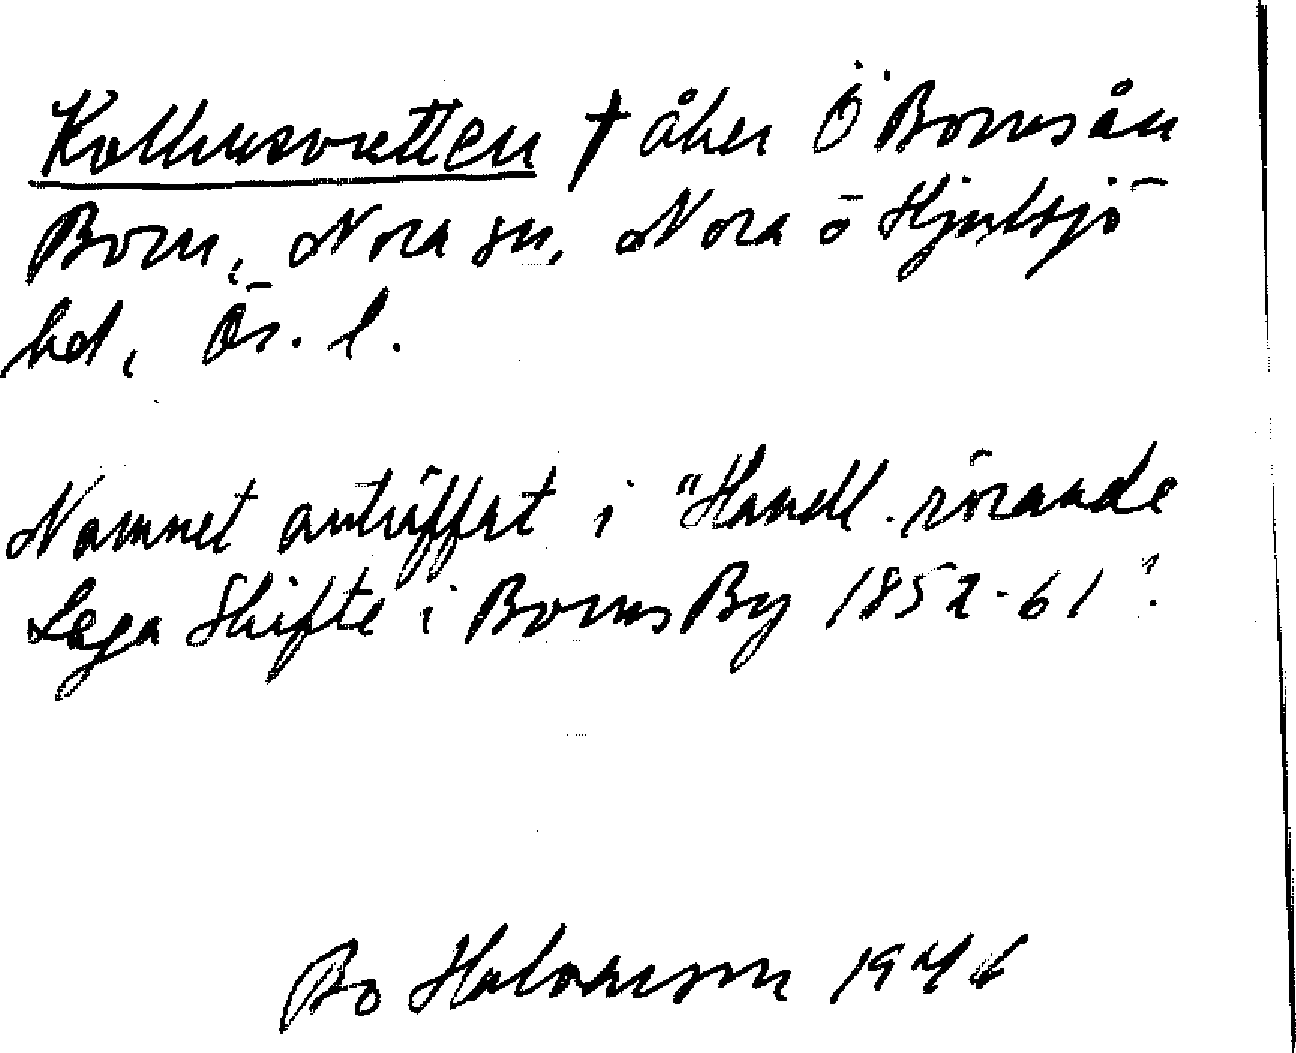 Kolhusvretten † åker Ö Bornsån
Born, Nora sn, Nora o Hjulsjö
hd, Ör. l.
Namnet anträffat i "Handl. rörande
Laga Skifte i Borns By 1852-61".
Bo Halvarson 1946